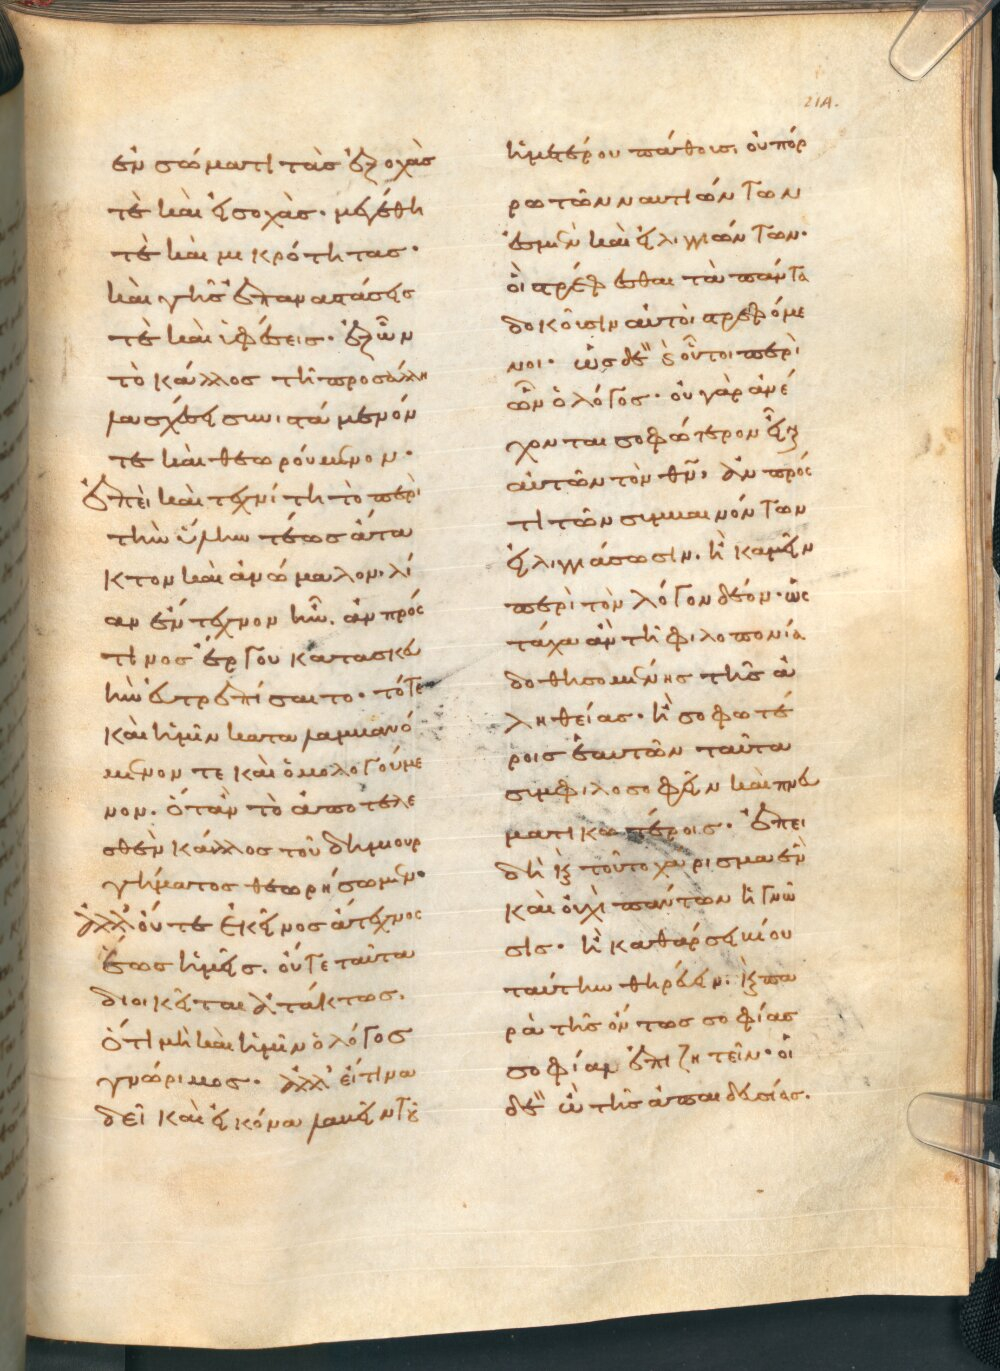 21A.
ἐν σώματι τὰς ἐξοχὰσ
τὲ καὶ εἰσοχὰσ· μεγέθη
τὲ καὶ μικρότητασ·
καὶ γῆς ἐπαναστάσεις
τὲ καὶ ὑφέσεισ· ἐξ ὧν
τὸ κάλλος τῆ προσ ἄλλη
λα σχέσει συνιστάμενόν
τε καὶ θεωρούμενον·
Ἐπεὶ καὶ τεχνίτη τὸ περὶ
τὴν ὕλην τέωσ ἄτα
κτον καὶ ἀνώμαλον, λί
αν ἔντεχνον ἦν, ἂν πρός
τινοσ ἔργου κατασκευ
ὴν εὐτρεπίσαιτο· τότε
καὶ ἡμῖν καταλαμβανό
μενον τε καὶ ὁμολογούμε
νον· ὅταν τὸ ἀποτελε
σθὲν κάλλος τοῦ δημιουρ
γήματος θεωρήσωμεν·
ἀλλ' οὔτε ἐκεῖνοσ ἄτεχνος
ἴσωσ ἡμεῖσ· οὔτε ταῦτα
διοικεῖται ἀτάκτωσ.
ὅτι μὴ καὶ ἡμῖν ὁ λόγοσ
γνώριμοσ· ἀλλ' εἴ τινα
δεῖ καὶ εἰκόνα λαβεῖν τοῦ
ἡμετέρου πάθουσ, οὐ πόρ
ρω τῶν ναυτιώντων
ἐσμὲν καὶ εἰλιγγιώντων·
οἳ στρέφεσθαι τὰ πάντα
δοκοῦσιν αὐτοὶ στρεφόμε
νοι· ὡσ δὲ οὗτοι περὶ
ὧν ὁ λόγοσ· οὐ γὰρ ἀνέ
χονται σοφώτερον εἶναι
αὐτῶν τὸν θν, ἂν πρός
τι τῶν συμβαινόντων
εἰλιγγιάσωσιν. ἢ καμεῖν
περὶ τὸν λόγον δέον· ὡς
τάχα ἂν τῆ φιλοπονία
δοθησομένης τῆσ ἀ
ληθείασ· ἢ σοφωτέ
ροισ ἑαυτῶν ταῦτα
συμφιλοσοφεῖν καὶ πνευ
ματικωτέροισ· ἐπει
δὴ καὶ τοῦτο χαρισμα ἓν
καὶ οὐχὶ πάντων ἡ γνῶ
σισ· ἢ καθάρσει βίου
ταύτην θηρεύειν. καὶ πα
ρὰ τῆσ ὄντωσ σοφίασ
σοφίαν ἐπιζητεῖν· οἱ
δὲ ὢ τῆσ ἀπαιδευσίασ.